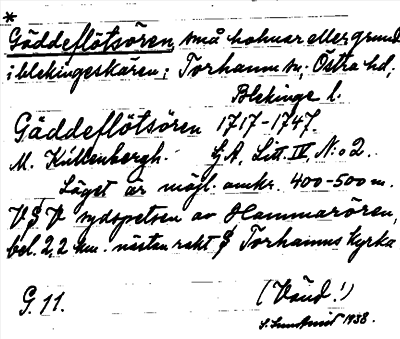 *
Gäddeflötsören, små holmar eller grund
i blekingeskären; Torhamns sn, Östra hd,
Blekinge l.
Gäddeflötsören 1717-1747.
M. Kühlenbergh. GA, Litt. IV, N:o 2.
Läget är möjl. omkr. 400-500 m.
V § V sydspetsen av Hammarören,
bel. 2,2 km. nästan rakt § Torhamns kyrka
G. 11. (Vänd!)
S. Sundkvist 1938.